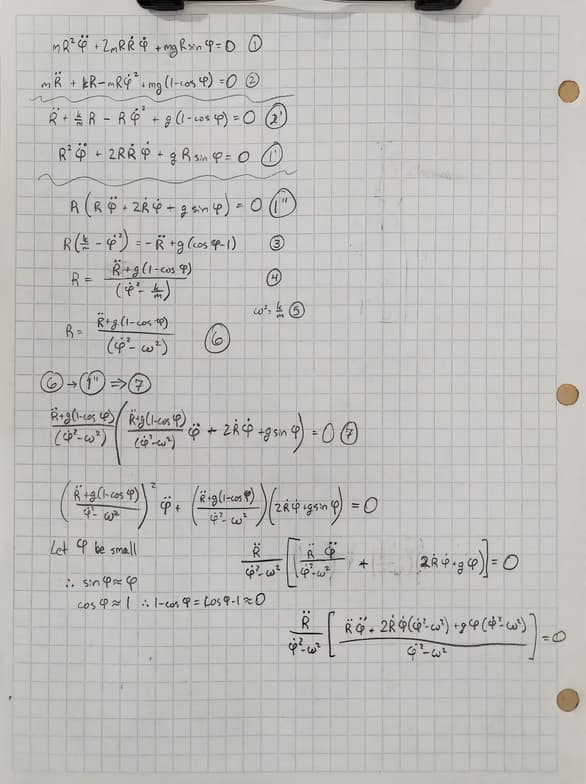 mR²φ̈ + 2mRṘφ̇ + mgR sin φ = 0 ①
mR̈ + kR − mRφ̇² + mg(1−cos φ) = 0 ②
R̈ + k/m R − Rφ̇² + g(1−cos φ) = 0 (2')
R²φ̈ + 2RṘφ̇ + gR sin φ = 0 (1')
R(Rφ̈ + 2Ṙφ̇ + g sin φ) = 0 (1'')
R(k/m − φ̇²) = −R̈ + g(cos φ−1) ③
R = (R̈ + g(1−cos φ))/(φ̇² − k/m) ④
ω² = k/m ⑤
R = (R̈ + g(1−cos φ))/(φ̇² − ω²) ⑥
⑥ → (1'') ⇒ ⑦
(R̈ + g(1−cos φ))/(φ̇² − ω²) ((R̈ + g(1−cos φ))/(φ̇² − ω²) φ̈ + 2Ṙφ̇ + g sin φ) = 0 ⑦
((R̈ + g(1−cos φ))/(φ̇² − ω²))² φ̈ + ((R̈ + g(1−cos φ))/(φ̇² − ω²))(2Ṙφ̇ + g sin φ) = 0
Let φ be small
∴ sin φ ≈ φ
cos φ ≈ 1 ∴ 1−cos φ = cos φ−1 ≈ 0
R̈/(φ̇² − ω²) [R̈φ̈/(φ̇² − ω²) + 2Ṙφ̇ + gφ)] = 0
R̈/(φ̇² − ω²) [(R̈φ̈ + 2Ṙφ̇(φ̇² − ω²) + gφ(φ̇² − ω²))/(φ̇² − ω²)] = 0